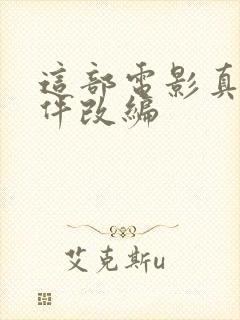 這部電影真
件改編
艾克斯u